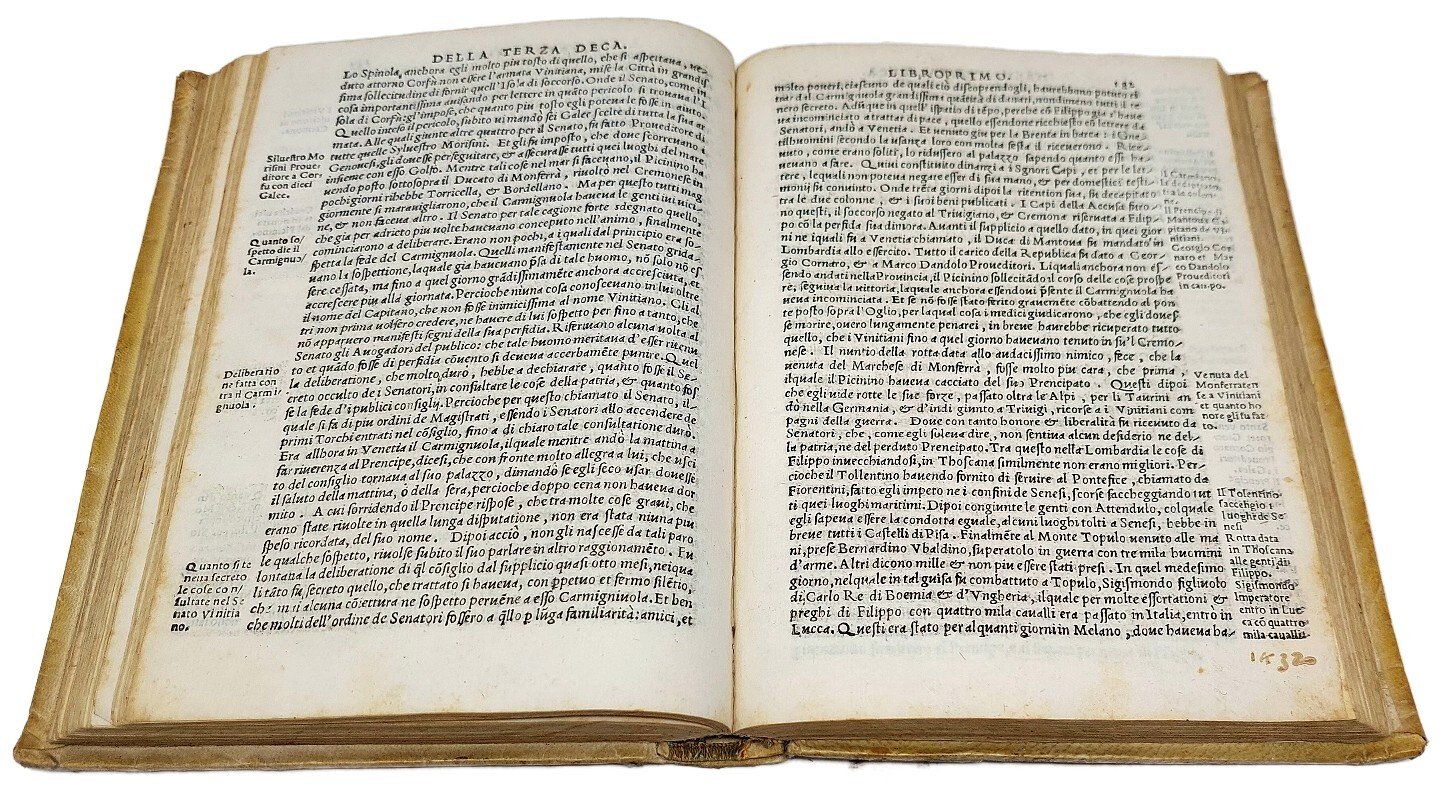 DELLA TERZA DECA.
Lo Spinola, anchora egli molto piu tosto di quello, che si aspettaua, ue-
duto attorno Corfù non essere l'armata Vinitiana, mise la Città in grandis
sima sollecitudine di fornir quell'Isola di soccorso. Onde il Senato, come in
cosa importantissima auisando per lettere in quãto pericolo si trouaua l'I
sola di Corfu: gl'impose, che quanto piu tosto egli poteua le fosse in aiuto.
Quello inteso il pericolo, subito ui mandò sei Galee scelte di tutta la sua ar
mata. Alle quali giunte altre quattro per il Senato, fu fatto Proueditore di
tutte quelle Syluestro Morisini. Et gli fu imposto, che doue scorreuano i
Genouesi, gli douesse perseguitare, & assicurasse tutti quei luoghi del mare
insieme con esso Golfo. Mentre tali cose nel mar si faceuano, il Picinino ha
uendo posto sottosopra il Ducato di Monferrà, riuoltò nel Cremonese in
pochi giorni ribebbe Torricella, & Bordellano. Ma per questo tutti mag
giormente si marauigliarono, che il Carmignuola haueua le genti iui uici-
ne, & non faceua altro. Il Senato per tale cagione forte sdegnato quello,
che gia per adrieto piu uolte haueuano conceputo nell'animo, finalmente
cominciarono a deliberare. Erano non pochi, a i quali dal principio era so-
spetta la fede del Carmignuola. Quelli manifestamente nel Senato grida-
uano la sospettione, laquale gia haueuano p̃sa di tale huomo, nõ solo nõ es
sere cessata, ma fino a quel giorno grãdissimamẽte anchora accresciuta, et
accrescere piu alla giornata. Percioche niuna cosa conosceuano in lui oltre
il nome del Capitano, che non fosse inimicissima al nome Vinitiano. Gli al
tri non prima uolsero credere, ne hauere di lui sospetto per fino a tanto, che
nõ apparuero manifesti segni della sua perfidia. Riferiuano alcuna uolta al
Senato gli Auogadori del publico: che tale huomo meritaua d'esser ritenu
to et quãdo fosse di perfidia cõuento si deueua accerbamẽte punire. Quel
la deliberatione, che molto durò, hebbe a dechiarare, quãto fosse il Se-
creto occulto de i Senatori, in consultare le cose della patria, & quanto fos
se la fede d'i publici consiglij. Percioche per questo chiamato il Senato, il-
quale si fa di piu ordini de Magistrati, essendo i Senatori allo accendere de
primi Torchi entrati nel cõsiglio, fino a di chiaro tale consultatione durò.
Era allhora in Venetia il Carmignuola, ilquale mentre andò la mattina a
far riuerenza al Prencipe, dicesi, che con fronte molto allegra a lui, che usci
to del consiglio tornaua al suo palazzo, dimandò se egli seco usar douesse
il saluto della mattina, ò della sera, percioche doppo cena non haueua dor
mito. A cui sorridendo il Prencipe rispose, che tra molte cose graui, che
erano state riuolte in quella lunga disputatione, non era stata niuna piu
spesso ricordata, del suo nome. Dipoi acciò, non gli nascesse da tali paro
le qualche sospetto, riuolse subito il suo parlare in altro raggionamẽto. Fu
lontatta la deliberatione di q̃l cõsiglio dal supplicio quasi otto mesi, nei qua
li tãto fu secreto quello, che trattato si haueua, con p̱petuo et fermo silẽtio,
che mai alcuna coiettura ne sospetto peruẽne a esso Carmigniuola. Et ben
che molti dell'ordine de Senatori fossero a q̃llo p̱ lũga familiarità: amici, et
Siluestro Mo
risini Proue-
ditore a Cor-
fu con dieci
Galee.
Quanto so-
spetto die il
Carmignuo-
la.
Deliberatio
ne fatta con
tra il Carmi
gnuola.
Quanto si te
neua secreto
le cose con
sultate nel Se
nato Vinitia
no.
LIBRO PRIMO.
molto poueri, ciascuno de quali ciò discoprendogli, haurebbono potuto ri
trar dal Carmignuola grandissima quãtità di danari, nondimeno tutti il te
nero secreto. Adũque in quell'ispatio di tẽpo, perche cõ Filippo gia s'haue
ua incominciato a trattar di pace, quello essendone ricchiesto cõ lettere da
Senatori, andò a Venetia. Et uenuto giu per la Brenta in barca i Gen-
tilhuomini secondo la usanza loro con molta festa il riceuerono. Rice-
uuto, come erano soliti, lo ridussero al palazzo sapendo quanto essi ha-
ueuano a fare. Quiui constituito dinanzi a i Signori Capi, et per le lat-
tere, lequali non poteua negare esser di sua mano, & per domestici testi-
monij fu conuinto. Onde trẽta giorni dipoi la ritention sua, fu decapitato
tra le due colonne, & i suoi beni publicati. I Capi della Accusa furo-
no questi, il soccorso negato al Triuigiano, & Cremona riseruata a Filip-
po cõ la perfida sua dimora. Auanti il supplicio a quello dato, in quei gior
ni ne i quali fu a Venetia chiamato, il Duca di Mantoua fu mandato in
Lombardia allo essercito. Tutto il carico della Republica fu dato a Geor-
gio Cornaro, & a Marco Dandolo Proueditori. Li quali anchora non es-
sendo andati nella Prouincia, il Picinino sollecitãdo il corso delle cose prospe
re, seguiua la uittoria, laquale anchora essendoui p̃sente il Carmignuola ha
ueua incominciata. Et se nõ fosse stato ferito grauemẽte cõbattendo al pon
te posto sopra l'Oglio, per laqual cosa i medici giudicarono, che egli doues-
se morire, ouero lungamente penarei, in breue haurebbe ricuperato tutto
quello, che i Vinitiani fino a quel giorno haueuano tenuto in su'l Cremo-
nese. Il nuntio della rotta data allo audacissimo nimico, fece, che la
uenuta del Marchese di Monferrà, fosse molto piu cara, che prima,
ilquale il Picinino haueua cacciato del suo Prencipato. Questi dipoi
che egli uide rotte le sue forze, passato oltre a le Alpi, per li Taurini an
dò nella Germania, & d'indi giunto a Triuigi, ricorse a i Vinitiani com
pagni della guerra. Doue con tanto honore & liberalità fu riceuuto da
Senatori, che, come egli soleua dire, non sentiua alcun desiderio ne del-
la patria, ne del perduto Prencipato. Tra questo nella Lombardia le cose di
Filippo inuecchiandosi, in Thoscana similmente non erano migliori. Per-
cioche il Tollentino hauendo fornito di seruire al Pontefice, chiamato da
Fiorentini, fatto egli impeto ne i confini de Senesi, scorse saccheggiando tut
ti quei luoghi maritimi. Dipoi congiunte le genti con Attendulo, col quale
egli sapeua essere la condotta eguale, alcuni luoghi tolti a Senesi, hebbe in
breue tutti i Castelli di Pisa. Finalmẽte al Monte Topulo uenuto alle ma
ni, prese Bernardino Vbaldino, superatolo in guerra con tre mila huomini
d'arme. Altri dicono mille & non piu essere stati presi. In quel medesimo
giorno, nel quale in tal guisa fu combattuto a Topulo, Sigismondo figliuolo
di Carlo Re di Boemia & d'Vngheria, ilquale per molte essortationi &
preghi di Filippo con quattro mila caualli era passato in Italia, entrò in
Lucca. Questi era stato per alquanti giorni in Melano, doue haueua ha-
Il Carmignuo
la decapitato
tra le colonne
Il Prencipe di
Mantoua Ca
pitano de Vi
nitiani.
Georgio Cor
naro et Mar
co Dandolo
Proueditori
in campo.
Venuta del
Monferraten
se a Vinitiani
et quanto ho
nore gli fu fat
to.
Il Tolentino
saccheggia i
luoghi de Se
nesi
Rotta data
in Thoscana
alle genti di
Filippo.
Sigismondo
Imperatore
entro in Luc
ca cõ quattro
mila caualli
1432